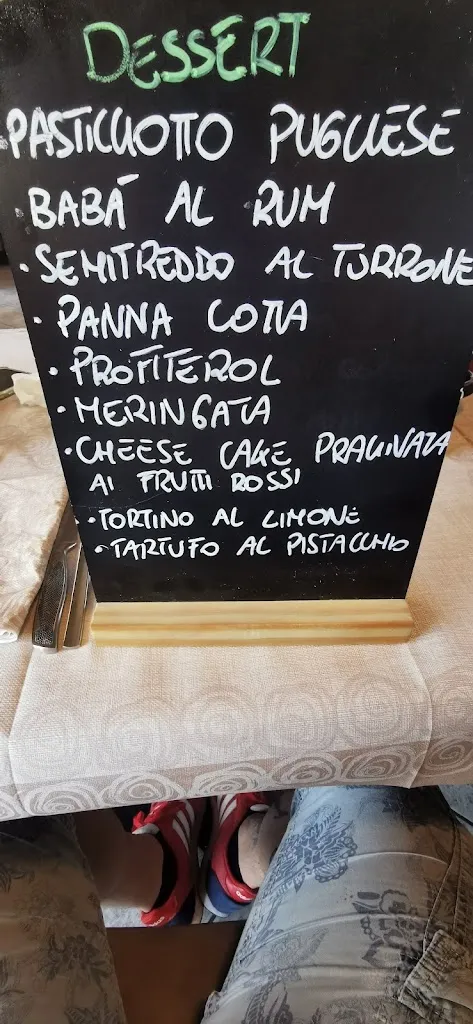 DESSERT
• PASTICCIOTTO PUGLIESE
• BABÁ AL RUM
• SEMIFREDDO AL TORRONE
• PANNA COTTA
• PROFITEROL
• MERINGATA
• CHEESE CAKE PRALINATA
AI FRUTTI ROSSI
• TORTINO AL LIMONE
• TARTUFO AL PISTACCHIO